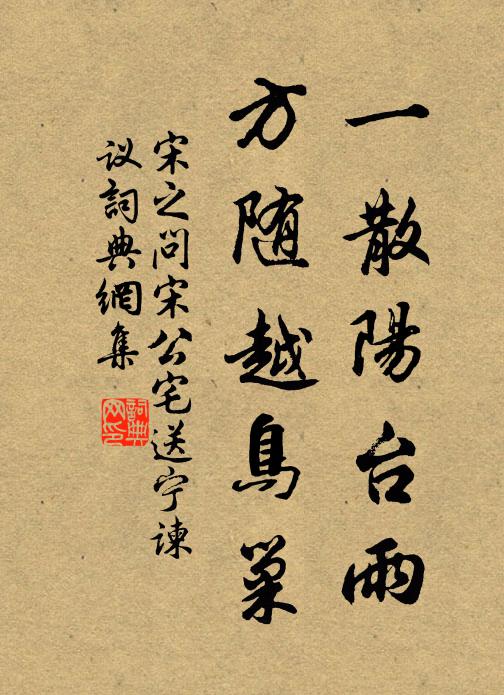 一散陽台雨
方随越鳥巢
宋之问宋公宅送宁諫
议詞典網集
詞典网印